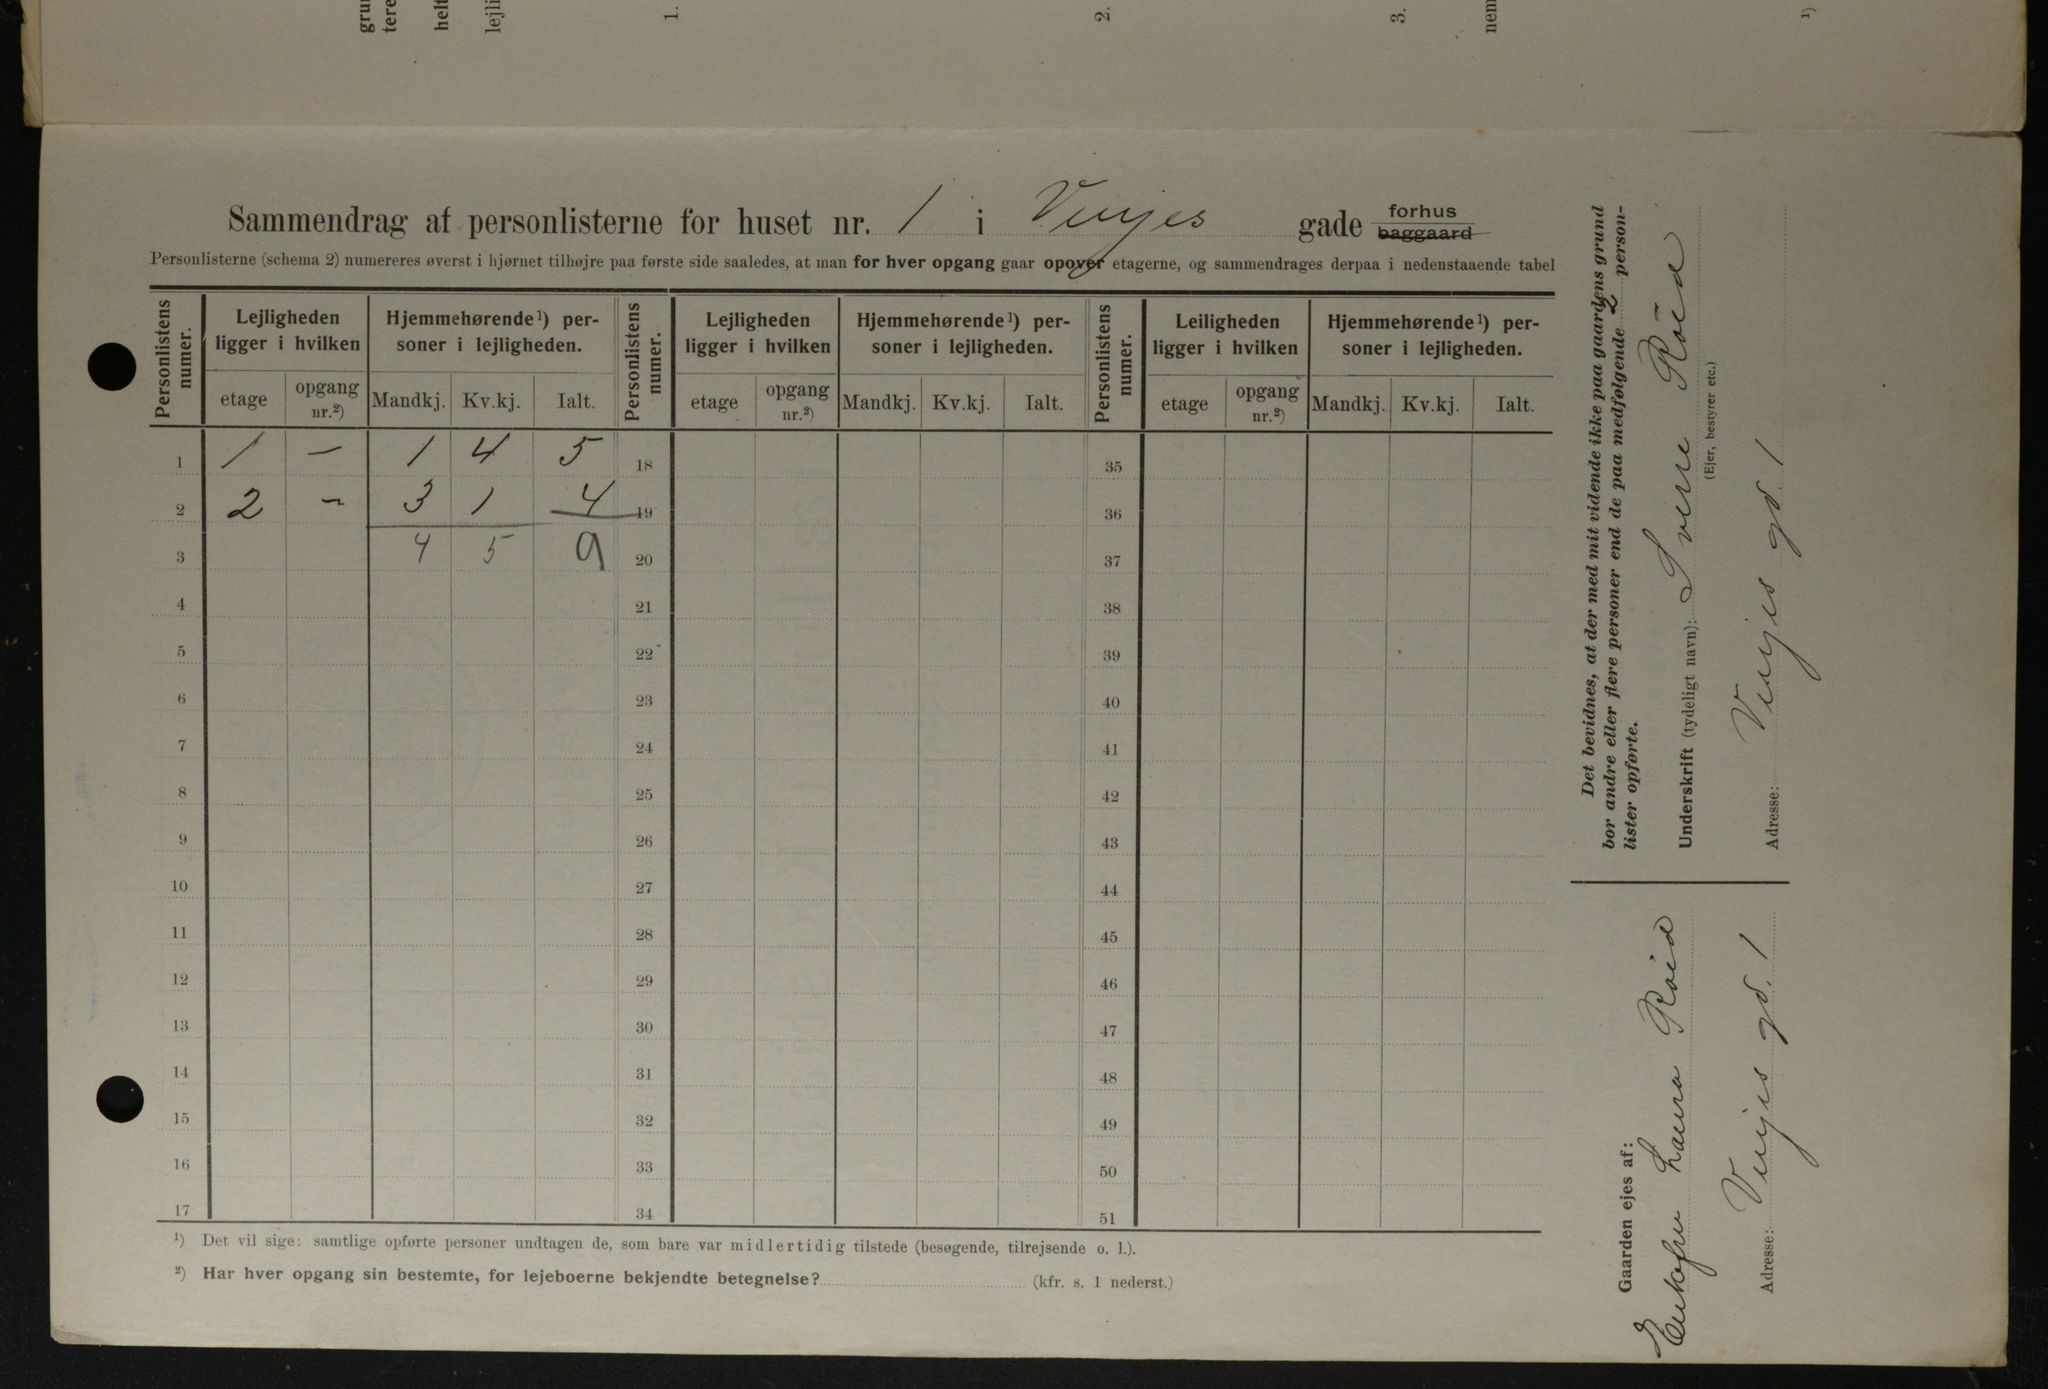 grun
tere
helt
lejli
1.
2.
3.
nem
1)
Sammendrag af personlisterne for huset nr. 1 i Vinjes gade forhus baggaard
Personlisterne (schema 2) numereres øverst i hjørnet tilhøjre paa første side saaledes, at man for hver opgang gaar opover etagerne, og sammendrages derpaa i nedenstaaende tabel
Personlistens numer. Lejligheden ligger i hvilken Hjemmehørende¹) personer i lejligheden. Personlistens numer. Lejligheden ligger i hvilken Hjemmehørende¹) personer i lejligheden. Personlistens numer. Leiligheden ligger i hvilken Hjemmehørende¹) personer i lejligheden.
etage opgang nr.²) Mandkj. Kv.kj. Ialt. etage opgang nr.²) Mandkj. Kv.kj. Ialt. etage opgang nr.²) Mandkj. Kv.kj. Ialt.
1 1 – 1 4 5 18 35
2 2 – 3 1 4 19 36
3 4 5 9 20 37
4 21 38
5 22 39
6 23 40
7 24 41
8 25 42
9 26 43
10 27 44
11 28 45
12 29 46
13 30 47
14 31 48
15 32 49
16 33 50
17 34 51
¹) Det vil sige: samtlige opførte personer undtagen de, som bare var midlertidig tilstede (besøgende, tilrejsende o. l.).
²) Har hver opgang sin bestemte, for lejeboerne bekjendte betegnelse? (kfr. s. 1 nederst.)
Det bevidnes, at der med mit vidende ikke paa gaardens grund
bor andre eller flere personer end de paa medfølgende 2 person-
lister opførte.
Underskrift (tydeligt navn): Sverre Röed
(Ejer, bestyrer etc.)
Adresse: Vinjes gd. 1
Gaarden ejes af:
Enkefru Laura Röed
Adresse: Vinjes gd. 1